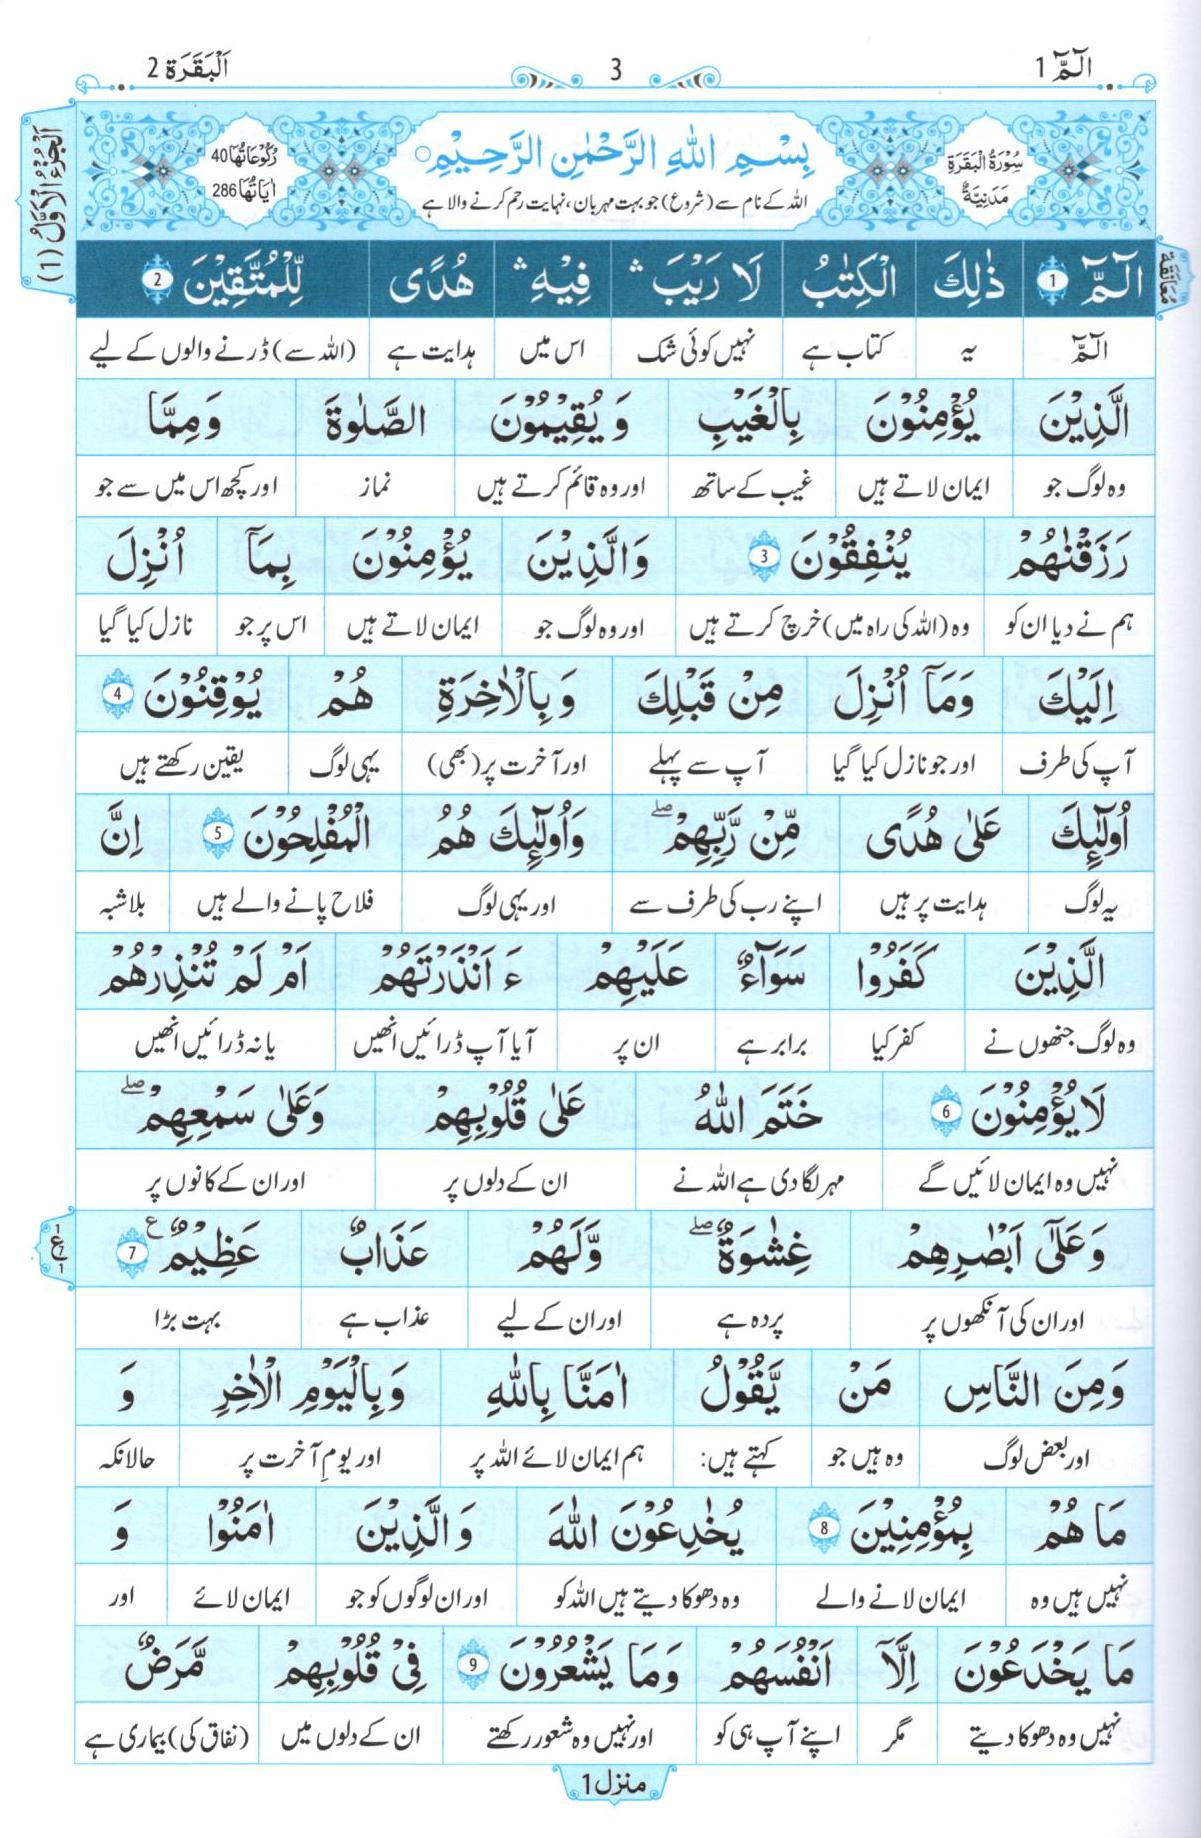 الٓمّٓ 1
3
اَلْبَقَرَة 2
اَلْجُزْءُ الْاَوَّلُ (1)
سُوْرَةُ الْبَقَرَةِ مَدَنِيَّةٌ
بِسْمِ اللّٰهِ الرَّحْمٰنِ الرَّحِيْمِ
اللہ کے نام سے (شروع) جو بہت مہربان، نہایت رحم کرنے والا ہے
رُكُوْعَاتُهَا 40
اٰيَاتُهَا 286
مُعَانَقَة
الٓمّٓ 1 ذٰلِكَ الْكِتٰبُ لَا رَيْبَ ۛ فِيْهِ ۛ هُدًى لِّلْمُتَّقِيْنَ 2
الٓمّٓ یہ کتاب ہے نہیں کوئی شک اس میں ہدایت ہے (اللہ سے) ڈرنے والوں کے لیے
الَّذِيْنَ يُؤْمِنُوْنَ بِالْغَيْبِ وَيُقِيْمُوْنَ الصَّلٰوةَ وَمِمَّا
وہ لوگ جو ایمان لاتے ہیں غیب کے ساتھ اور وہ قائم کرتے ہیں نماز اور کچھ اس میں سے جو
رَزَقْنٰهُمْ يُنْفِقُوْنَ 3 وَالَّذِيْنَ يُؤْمِنُوْنَ بِمَآ اُنْزِلَ
ہم نے دیا ان کو وہ (اللہ کی راہ میں) خرچ کرتے ہیں اور وہ لوگ جو ایمان لاتے ہیں اس پر جو نازل کیا گیا
اِلَيْكَ وَمَآ اُنْزِلَ مِنْ قَبْلِكَ وَبِالْاٰخِرَةِ هُمْ يُوْقِنُوْنَ 4
آپ کی طرف اور جو نازل کیا گیا آپ سے پہلے اور آخرت پر (بھی) یہی لوگ یقین رکھتے ہیں
اُولٰٓئِكَ عَلٰى هُدًى مِّنْ رَّبِّهِمْ ۖ وَاُولٰٓئِكَ هُمُ الْمُفْلِحُوْنَ 5 اِنَّ
یہ لوگ ہدایت پر ہیں اپنے رب کی طرف سے اور یہی لوگ فلاح پانے والے ہیں بلاشبہ
الَّذِيْنَ كَفَرُوْا سَوَآءٌ عَلَيْهِمْ ءَ اَنْذَرْتَهُمْ اَمْ لَمْ تُنْذِرْهُمْ
وہ لوگ جنھوں نے کفر کیا برابر ہے ان پر آیا آپ ڈرائیں انھیں یا نہ ڈرائیں انھیں
لَا يُؤْمِنُوْنَ 6 خَتَمَ اللّٰهُ عَلٰى قُلُوْبِهِمْ وَعَلٰى سَمْعِهِمْ ۖ
نہیں وہ ایمان لائیں گے مہر لگا دی ہے اللہ نے ان کے دلوں پر اور ان کے کانوں پر
وَعَلٰٓى اَبْصٰرِهِمْ غِشٰوَةٌ ۖ وَّلَهُمْ عَذَابٌ عَظِيْمٌ ع 7
1 ع 7 1
اور ان کی آنکھوں پر پردہ ہے اور ان کے لیے عذاب ہے بہت بڑا
وَمِنَ النَّاسِ مَنْ يَّقُوْلُ اٰمَنَّا بِاللّٰهِ وَبِالْيَوْمِ الْاٰخِرِ وَ
اور بعض لوگ وہ ہیں جو کہتے ہیں: ہم ایمان لائے اللہ پر اور یومِ آخرت پر حالانکہ
مَا هُمْ بِمُؤْمِنِيْنَ 8 يُخٰدِعُوْنَ اللّٰهَ وَالَّذِيْنَ اٰمَنُوْا وَ
نہیں ہیں وہ ایمان لانے والے وہ دھوکا دیتے ہیں اللہ کو اور ان لوگوں کو جو ایمان لائے اور
مَا يَخْدَعُوْنَ اِلَّآ اَنْفُسَهُمْ وَمَا يَشْعُرُوْنَ 9 فِيْ قُلُوْبِهِمْ مَّرَضٌ
نہیں وہ دھوکا دیتے مگر اپنے آپ ہی کو اور نہیں وہ شعور رکھتے ان کے دلوں میں (نفاق کی) بیماری ہے
منزل 1